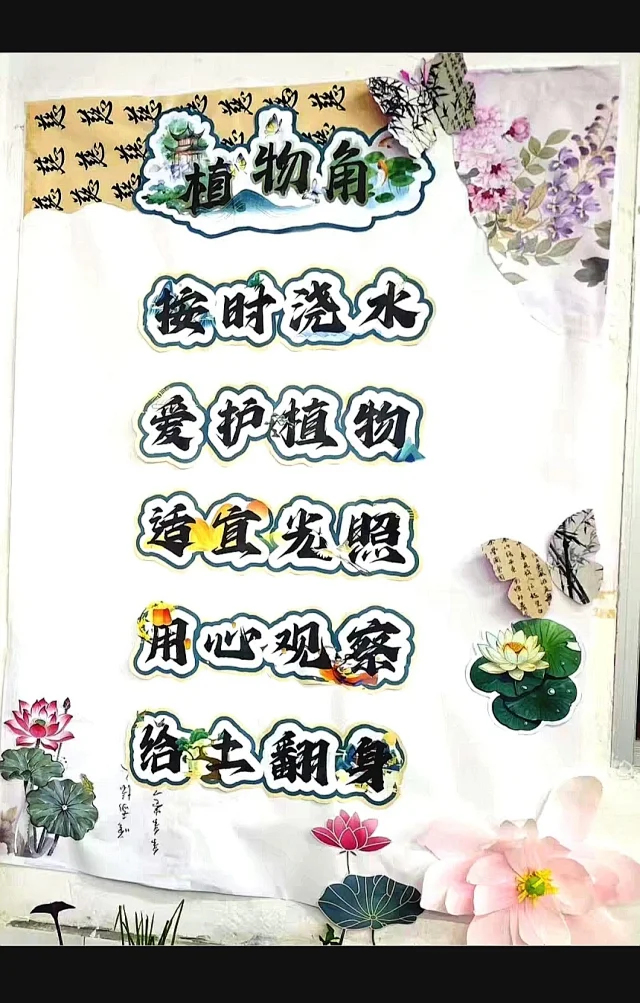 植物角
按时浇水
爱护植物
适宜光照
用心观察
给土翻身